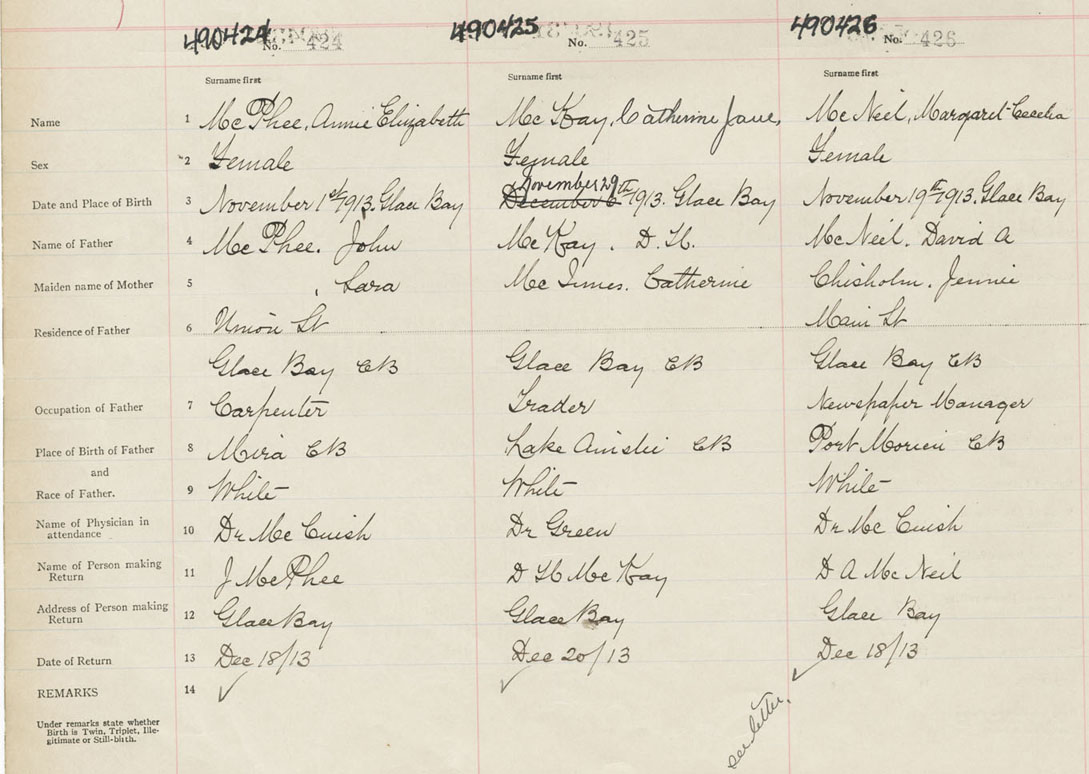 490424 No. 424 490425 No. 425 490426 No. 426
Surname first Surname first Surname first
Name 1 Mc Phee, Annie Elizabeth Mc Kay, Catherine Jane, Mc Neil, Margaret Cecelia
Sex 2 Female Female Female
November 29th
Date and Place of Birth 3 November 1st 1913. Glace Bay December 6 1913. Glace Bay November 19th 1913. Glace Bay
Name of Father 4 Mc Phee. John Mc Kay. D. H. Mc Neil. David A
Maiden name of Mother 5 , Sara Mc Innes. Catherine Chisholm. Jennie
Residence of Father 6 Union St Main St
Glace Bay CB Glace Bay CB Glace Bay CB
Occupation of Father 7 Carpenter Trader Newspaper Manager
Place of Birth of Father 8 Mira CB Lake Ainslie CB Port Morien CB
and
Race of Father. 9 White White White
Name of Physician in
attendance 10 Dr Mc Cuish Dr Green Dr Mc Cuish
Name of Person making
Return 11 J McPhee D H Mc Kay D A Mc Neil
Address of Person making
Return 12 Glace Bay Glace Bay Glace Bay
Date of Return 13 Dec 18/13 Dec 20/13 Dec 18/13
REMARKS 14
Under remarks state whether
Birth is Twin, Triplet, Ille-
gitimate or Still-birth.
see letter.